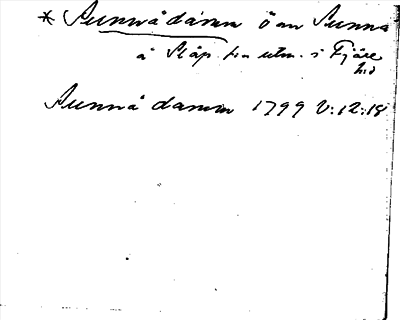 * Sunnådamm ö om Sunnå
å Släp sn utm. i Fjäre
hd
Sunnå damm 1799 V:12:18